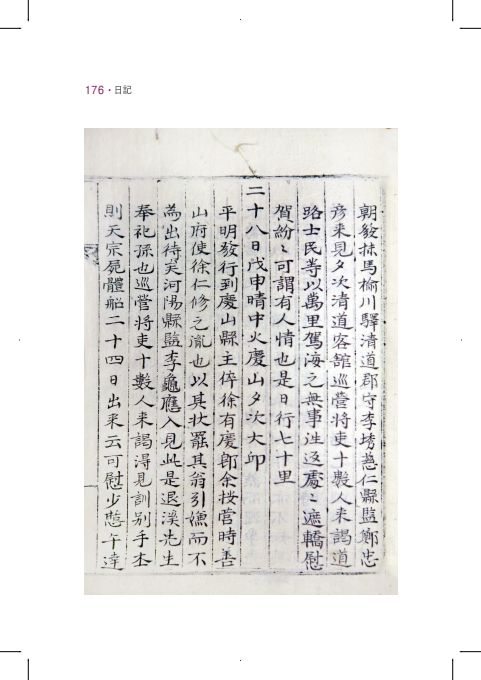 176 · 日記
朝發抹馬楡川驛淸道郡守李琇慈仁縣監鄭忠
彦来見夕次淸道客館巡營將吏十數人来謁道
路士民等以萬里駕海之無事往返處〻遮轎慰
賀紛〻可謂有人情也是日行七十里
二十八日戊申晴中火慶山夕次大邱
平明發行到慶山縣主倅徐有慶卽余按營時善
山府使徐仁修之胤也以其狀罷其翁引嫌而不
為出待矣河陽縣監李龜應入見此是退溪先生
奉祀孫也巡營將吏十數人来謁得見訓別手本
則天宗屍體船二十四日出来云可慰少憩午達